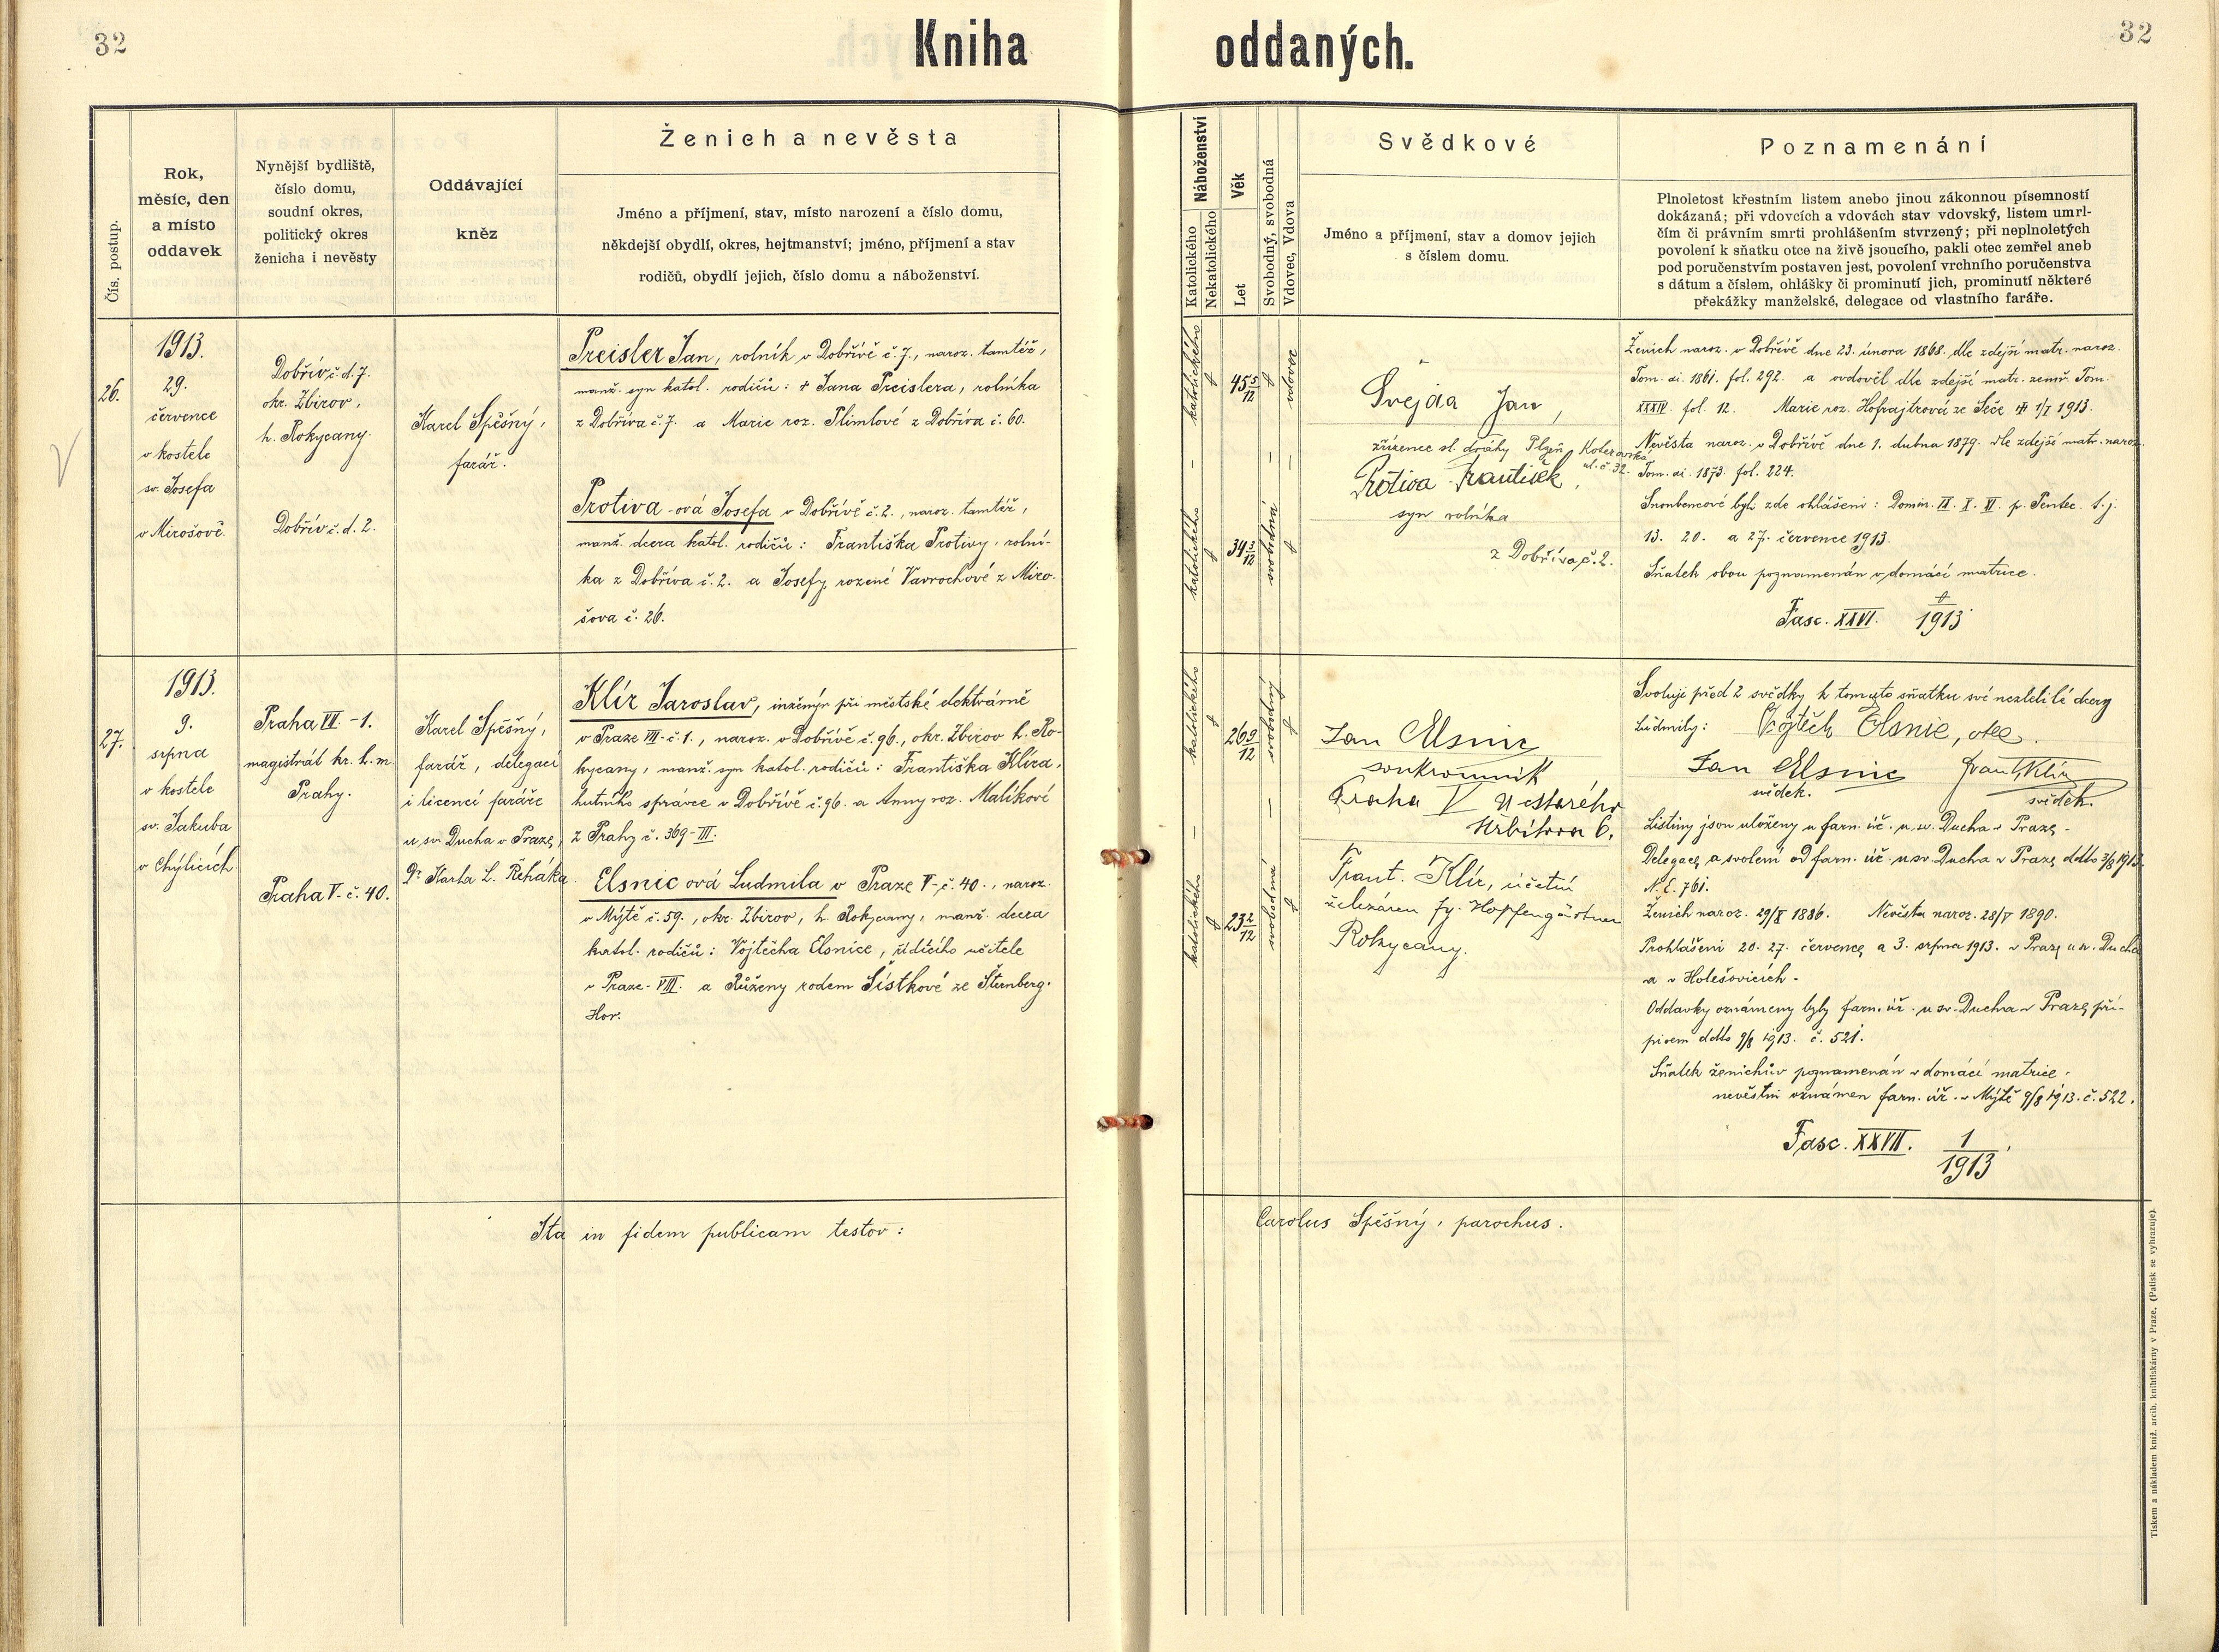 32
Kniha oddaných.
32
Čís. postup.
Rok,
měsíc, den
a místo
oddavek
Nynější bydliště,
číslo domu,
soudní okres,
politický okres
ženicha i nevěsty
Oddávající
kněz
Ženich a nevěsta
Jméno a příjmení, stav, místo narození a číslo domu,
někdejší obydlí, okres, hejtmanství; jméno, příjmení a stav
rodičů, obydlí jejich, číslo domu a náboženství.
Náboženství
Katolického
Nekatolického
Věk
Let
Svobodný, svobodná
Vdovec, Vdova
Svědkové
Jméno a příjmení, stav a domov jejich
s číslem domu.
Poznamenání
Plnoletost křestním listem anebo jinou zákonnou písemností
dokázaná; při vdovcích a vdovách stav vdovský, listem umrl-
čím či právním smrti prohlášením stvrzený; při neplnoletých
povolení k sňatku otce na živě jsoucího, pakli otec zemřel aneb
pod poručenstvím postaven jest, povolení vrchního poručenstva
s dátum a číslem, ohlášky či prominutí jich, prominutí některé
překážky manželské, delegace od vlastního faráře.
26.
1913.
29.
července
v kostele
sv. Josefa
v Mirošově.
Dobřív č. d. 7.
okr. Zbirov,
h. Rokycany.
Dobřív č. d. 2.
Karel Spěšný,
farář.
Preisler Jan, rolník v Dobřívě č. 7., naroz. tamtéž,
manž. syn katol. rodičů: † Jana Preislera, rolníka
z Dobříva č. 7. a Marie roz. Plimlové z Dobříva č. 60.
Protiva-ová Josefa v Dobřívě č. 2., naroz. tamtéž,
manž. dcera katol. rodičů: Františka Protivy, rolní-
ka z Dobříva č. 2. a Josefy rozené Vavrochové z Miro-
šova č. 26.
katolického
45 5/12
vdovec
katolického
34 3/12
svobodná
Švejda Jan,
zřízenec sl. dráhy Plzeň Koterovská
ul. č. 32.
Protiva František,
syn rolníka
z Dobříva č. 2.
Ženich naroz. v Dobřívě dne 23. února 1868. dle zdejší matr. naroz.
Tom. ai. 1861. fol. 292. a ovdověl dle zdejší matr. zemř. Tom.
XXXIV. fol. 12. Marie roz. Hofrajtrová ze Seče † 1/I 1913.
Nevěsta naroz. v Dobřívě dne 1. dubna 1879. dle zdejší matr. naroz.
Tom. ai. 1873. fol. 224.
Snoubencové byli zde ohlášeni: Domin. IX. X. XI. p. Pentec. t. j.
13. 20. a 27. července 1913.
Sňatek obou poznamenán v domácí matrice.
Fasc. XXVI. 1913
27.
1913.
9.
srpna
v kostele
sv. Jakuba
v Chýlicích.
Praha VII.-1.
magistrát kr. h. m.
Prahy.
Praha V.-č. 40.
Karel Spěšný,
farář, delegací
i licencí faráře
u sv. Ducha v Praze,
Dr. Karla L. Řeháka.
Klír Jaroslav, inženýr při městské elektrárně
v Praze VII-č. 1., naroz. v Dobřívě č. 96., okr. Zbirov h. Ro-
kycany, manž. syn katol. rodičů: Františka Klíra,
hutního správce v Dobřívě č. 96. a Anny roz. Malíkové
z Prahy č. 369-III.
Elsnic ová Ludmila v Praze V-č. 40., naroz.
v Mýtě č. 59., okr. Zbirov, h. Rokycany, manž. dcera
katol. rodičů: Vojtěcha Elsnice, řídícího učitele
v Praze-VIII. a Růženy rodem Šístkové ze Šternberg.
Hor.
katolického
26 9/12
svobodný
katolického
23 2/12
svobodná
Jan Elsnic
soukromník
Praha V U starého
hřbitova 6.
Frant. Klír, účetní
železáren fy. Hopfengärtner
Rokycany.
Svoluji před 2 svědky k tomuto sňatku své nezletilé dcery
Ludmily: Vojtěch Elsnic, otec.
Jan Elsnic Frant. Klír
svědek. svědek.
Listiny jsou uloženy u farn. úř. u sv. Ducha v Praze.
Delegace a svolení od farn. úř. u sv. Ducha v Praze ddto 3/8 1913.
N. E. 761.
Ženich naroz. 29/X 1886. Nevěsta naroz. 28/V 1890.
Prohlášeni 20. 27. července a 3. srpna 1913. v Praze u sv. Ducha
a v Holešovicích.
Oddavky oznámeny byly farn. úř. u sv. Ducha v Praze pří-
pisem ddto 9/8 1913. č. 521.
Sňatek ženichův poznamenán v domácí matrice,
nevěstin oznámen farn. úř. v Mýtě 9/8 1913. č. 522.
Fasc. XXVII. 1/1913
Ita in fidem publicam testor: Carolus Spěšný, parochus.
Tiskem a nákladem kníž. arcib. knihtiskárny v Praze. (Patisk se vyhrazuje).